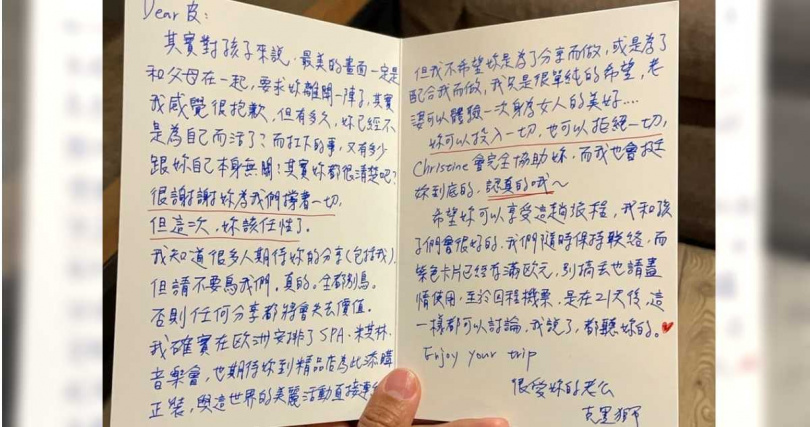 Dear 皮:
其實對孩子來說,最美的畫面一定是
和父母在一起,要求妳離開一陣子,其實
我感覺很抱歉,但有多久,妳已經不
是為自己而活了?而扛下的事,又有多少
跟妳自己本身無關?其實妳都很清楚吧?
很謝謝妳為我們撐著一切,
但這一次,妳該任性了。
我知道很多人期待妳的分享(包括我).
但請不要鳥我們。真的。全都別鳥。
否則任何分享都將會失去價值。
我確實在歐洲安排了SPA、米其林、
音樂會,也期待妳到精品店為此添購
正裝,與這世界的美麗活動直接連
但我不希望妳是為了分享而做,或是為了
配合我而做,我只是很單純的希望,老
婆可以體驗一次身為女人的美好....
妳可以投入一切,也可以拒絕一切,
Christine會完全協助妳,而我也會挺
妳到底的,認真的哦~
希望妳可以享受這趟旅程,我和孩
子們會很好的,我們隨時保持聯絡,而
紫色卡片已經存滿歐元,別搞丟也請盡
情使用,至於回程機票,是在21天後,這
一樣都可以討論,我說了,都聽妳的。
Enjoy your trip
很愛妳的老公